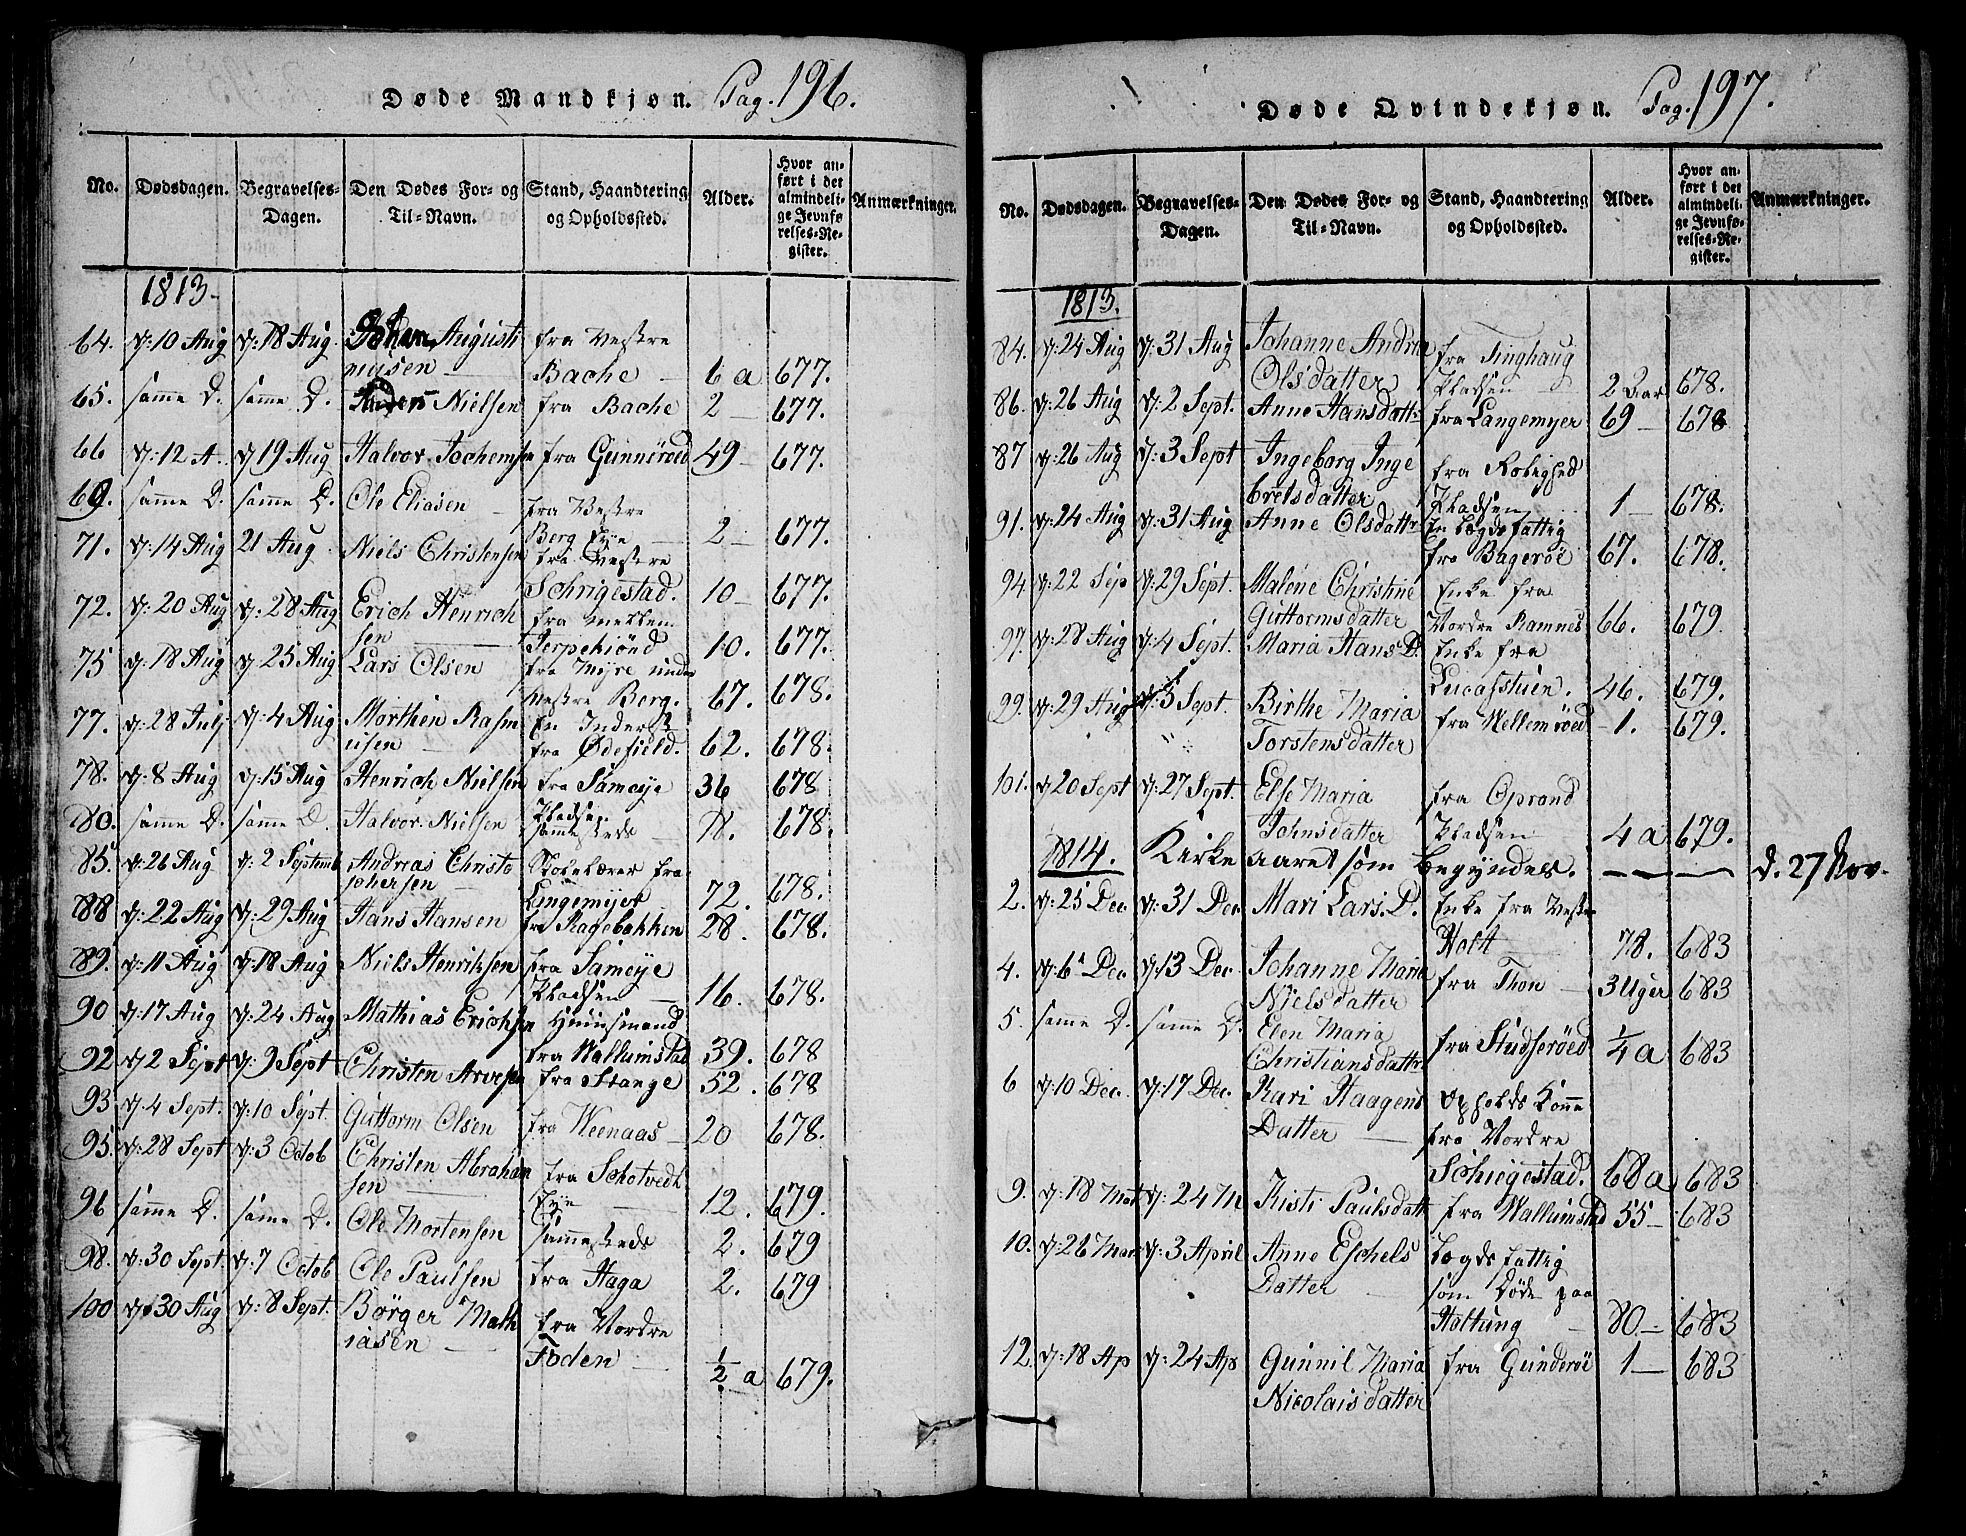 Døde Mandkjøn. Pag. 196.
No. Dødsdagen. Begravelses-Dagen. Den Dødes For- og Til-Navn. Stand, Haandtering og Opholdssted. Alder. Hvor anført i det almindelige Jevnførelses-Register. Anmærkninger.
1813.
64. d: 10 Aug d: 18 Aug. Johan Augusti fra Vestre
nusen Bache 6 a 677.
65. samme D. samme D. Anders Nielsen fra Bache 2 — 677.
66 d: 12 A. d 19 Aug Halvor Jochemsen fra Gunneröed 49 — 677.
69. samme D. samme D. Ole Eliasen fra Vestre
Berg Eye 2 — 677.
71. d: 14 Aug 21 Aug Niels Christensen fra Vestre
Schrigestad. 10 — 677.
72. d: 20 Aug d: 28 Aug Erich Henrich fra mellem
sen Jerpekiönd 10. 677.
75 d: 18 Aug d: 25 Aug Lars Olsen fra Myre under
Vestre Berg. 67. 678.
77. d: 28 Julj d: 4 Aug Morthen Rasm En Inderst
usen fra Ødefield. 62. 678.
78. d: 8 Aug d: 15 Aug Henrich Nielsen fra Sameye 36 678
Pladsen
80. samme D. samme D. Halvor Nielsen sammesteds 8. 678.
85. d: 26 Aug d: 2 Septemb Andreas Christo Skolelærer fra
phersen Langemyer 72. 678.
88 d: 22 Aug d: 29 Aug Hans Hansen fra Ragebakken 28. 678.
89. d: 11 Aug d: 18 Aug Niels Henriksen fra Sameye
Pladsen 16. 678.
90 d: 17 Aug d: 24 Aug Mathias Erichsen Huusmand
fra Wallumstad 39. 678
92 d: 2 Sept d: 9 Sept Christen Arvesen fra Stange 52. 678
93 d: 4 Sept. d: 10 Sept. Guttorm Olsen fra Weenaas 20 678.
95. d: 28 Sept d: 3 Octob Christen Abraham fra Schotvedt
sen Eye 12. 679.
96 samme D. samme D. Ole Mortensen sammesteds 2. 679
98. d: 30 Sept. d: 7 Octob Ole Paulsen fra Haga 2. 679
100 d: 30 Aug d: 8 Sept. Börger Math fra Vordre
iasen Foden ½ a 679.
Døde Qvindekjøn. Pag. 197.
No. Dødsdagen. Begravelses-Dagen. Den Dødes For- og Til-Navn. Stand, Haandtering og Opholdssted. Alder. Hvor anført i det almindelige Jevnførelses-Register. Anmærkninger.
1813.
84. d: 24 Aug d: 31 Aug Johanne Andrea fra Tinghaug
Olsdatter Pladsen 2 Aar 678.
86. d: 26 Aug d: 2 Sept. Anne Hansdattr fra Langemyer 69 — 678
87 d: 26 Aug d: 3 Sept Ingeborg Inge fra Rolighed
bretsdatter Pladsen 1 — 678.
91. d: 24 Aug d: 31 Aug Anne Olsdattr En Lægds fattig
fra Bageröe 67. 678.
94. d: 22 Sep d: 29 Sept. Malene Christine Enke fra
Guttormsdatter Vordre Ramnes 66. 679.
97. d: 28 Aug d: 4 Sept. Maria Hans D. Enke fra
Lucasstuen. 46. 679.
99. d: 29 Aug d: 5 Sept. Birthe Maria fra Mellemröed 1. 679.
Torstensdatter
101. d: 20 Sept d: 27 Sept. Else Maria fra Oprand
Johnsdatter Pladsen 4 a 679.
1814. Kirke aaret som begyndes. — — d. 27 Nov.
2. d: 25 Dec. d: 31 Dec Mari Lars. D. Enke fra Vestre
Holt 78. 683
4. d: 6 Dec. d: 13 Dec. Johanne Maria fra Thon 3 Uger 683
Nielsdatter
5. samme D. samme D. Elen Maria fra Studseröed ¼ a 683
Christiansdattr
6 d: 10 Dec. d: 17 Dec. Kari Haagens Opholds Konne
Datter fra Vordre
Schiegestad. 68 a 683
9. d: 18 Mat d: 24 M Kristi Paulsdatt fra Wallumstad 55 — 683
10. d: 26 Mar d: 3 April Anne Eschels Lægds fattig
Datter som Döde paa
Holtung 80. — 683
12. d: 18 Ap d: 24 Ap Gunnil Maria fra Gunderöe 1 — 683
Nicolaisdatter